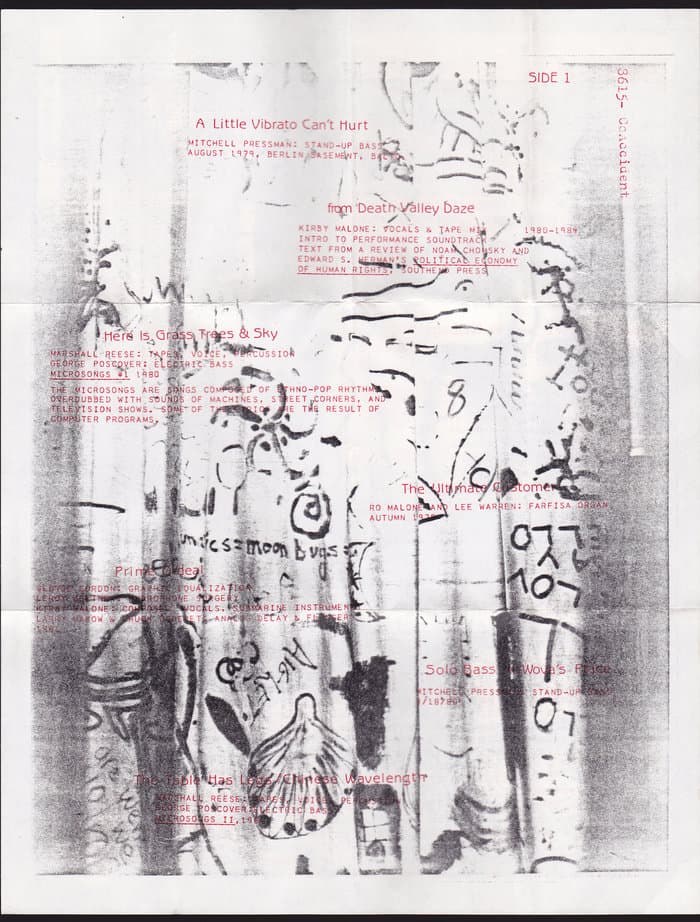 SIDE 1
3615- CoAccident
A Little Vibrato Can't Hurt
MITCHELL PRESSMAN: STAND-UP BASS
AUGUST 1979, BERLIN BASEMENT,
from Death Valley Daze
KIRBY MALONE: VOCALS & TAPE MIX 1980-1984
INTRO TO PERFORMANCE SOUNDTRACK
TEXT FROM A REVIEW OF NOAM CHOMSKY AND
EDWARD S. HERMAN'S POLITICAL ECONOMY
OF HUMAN RIGHTS, SOUTHEND PRESS
Here Is Grass Trees & Sky
MARSHALL REESE: TAPES, VOICE, PERCUSSION
GEORGE POSCOVER: ELECTRIC BASS
MICROSONGS #1 1980
THE MICROSONGS ARE SONGS COMPOSED OF ETHNO-POP RHYTHMS
OVERDUBBED WITH SOUNDS OF MACHINES, STREET CORNERS, AND
TELEVISION SHOWS. SOME OF THE ARE THE RESULT OF
COMPUTER PROGRAMS.
8
The Ultimate Customer
RO MALONE AND LEE WARREN: FARFISA ORGAN
AUTUMN
= moon bugs =
Prime Ordeal
GRAPHIC EQUALIZATION
KIRBY MALONE: VOCALS, SUBMARINE INSTRUMENT
ANALOG DELAY &
Solo Bass Wova's Place
MITCHELL PRESSMAN: STAND-UP BASS
The Table Has Legs/Chinese Wavelength
MARSHALL REESE: TAPES, VOICE, PERCUSSION
GEORGE POSCOVER: ELECTRIC BASS
MICROSONGS II,